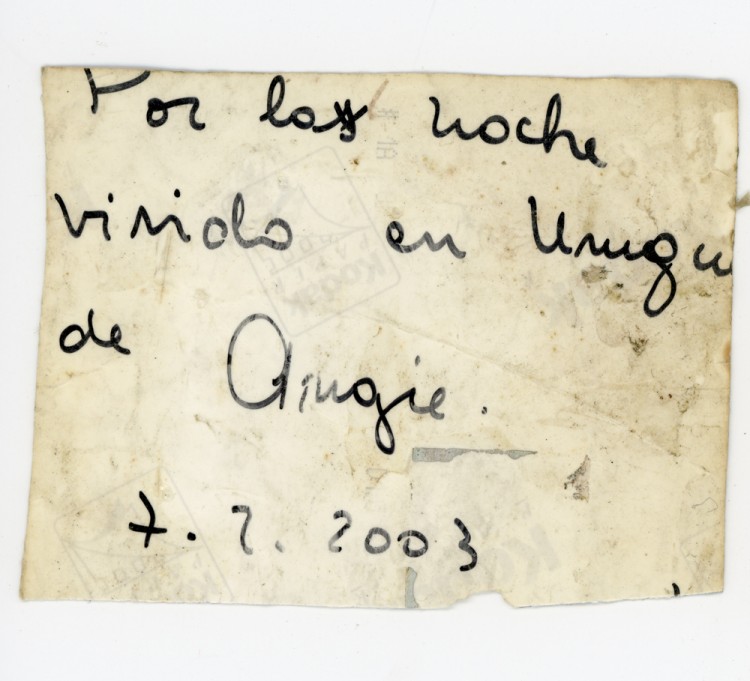 Por la noche
vivida en Urugu
de Angie.
7.2.2003
Kodak